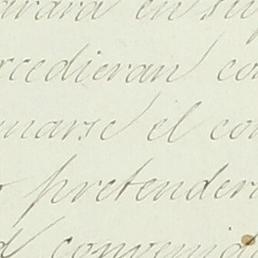 arará en su
rcedieran co
marse el con
pretender
convenid